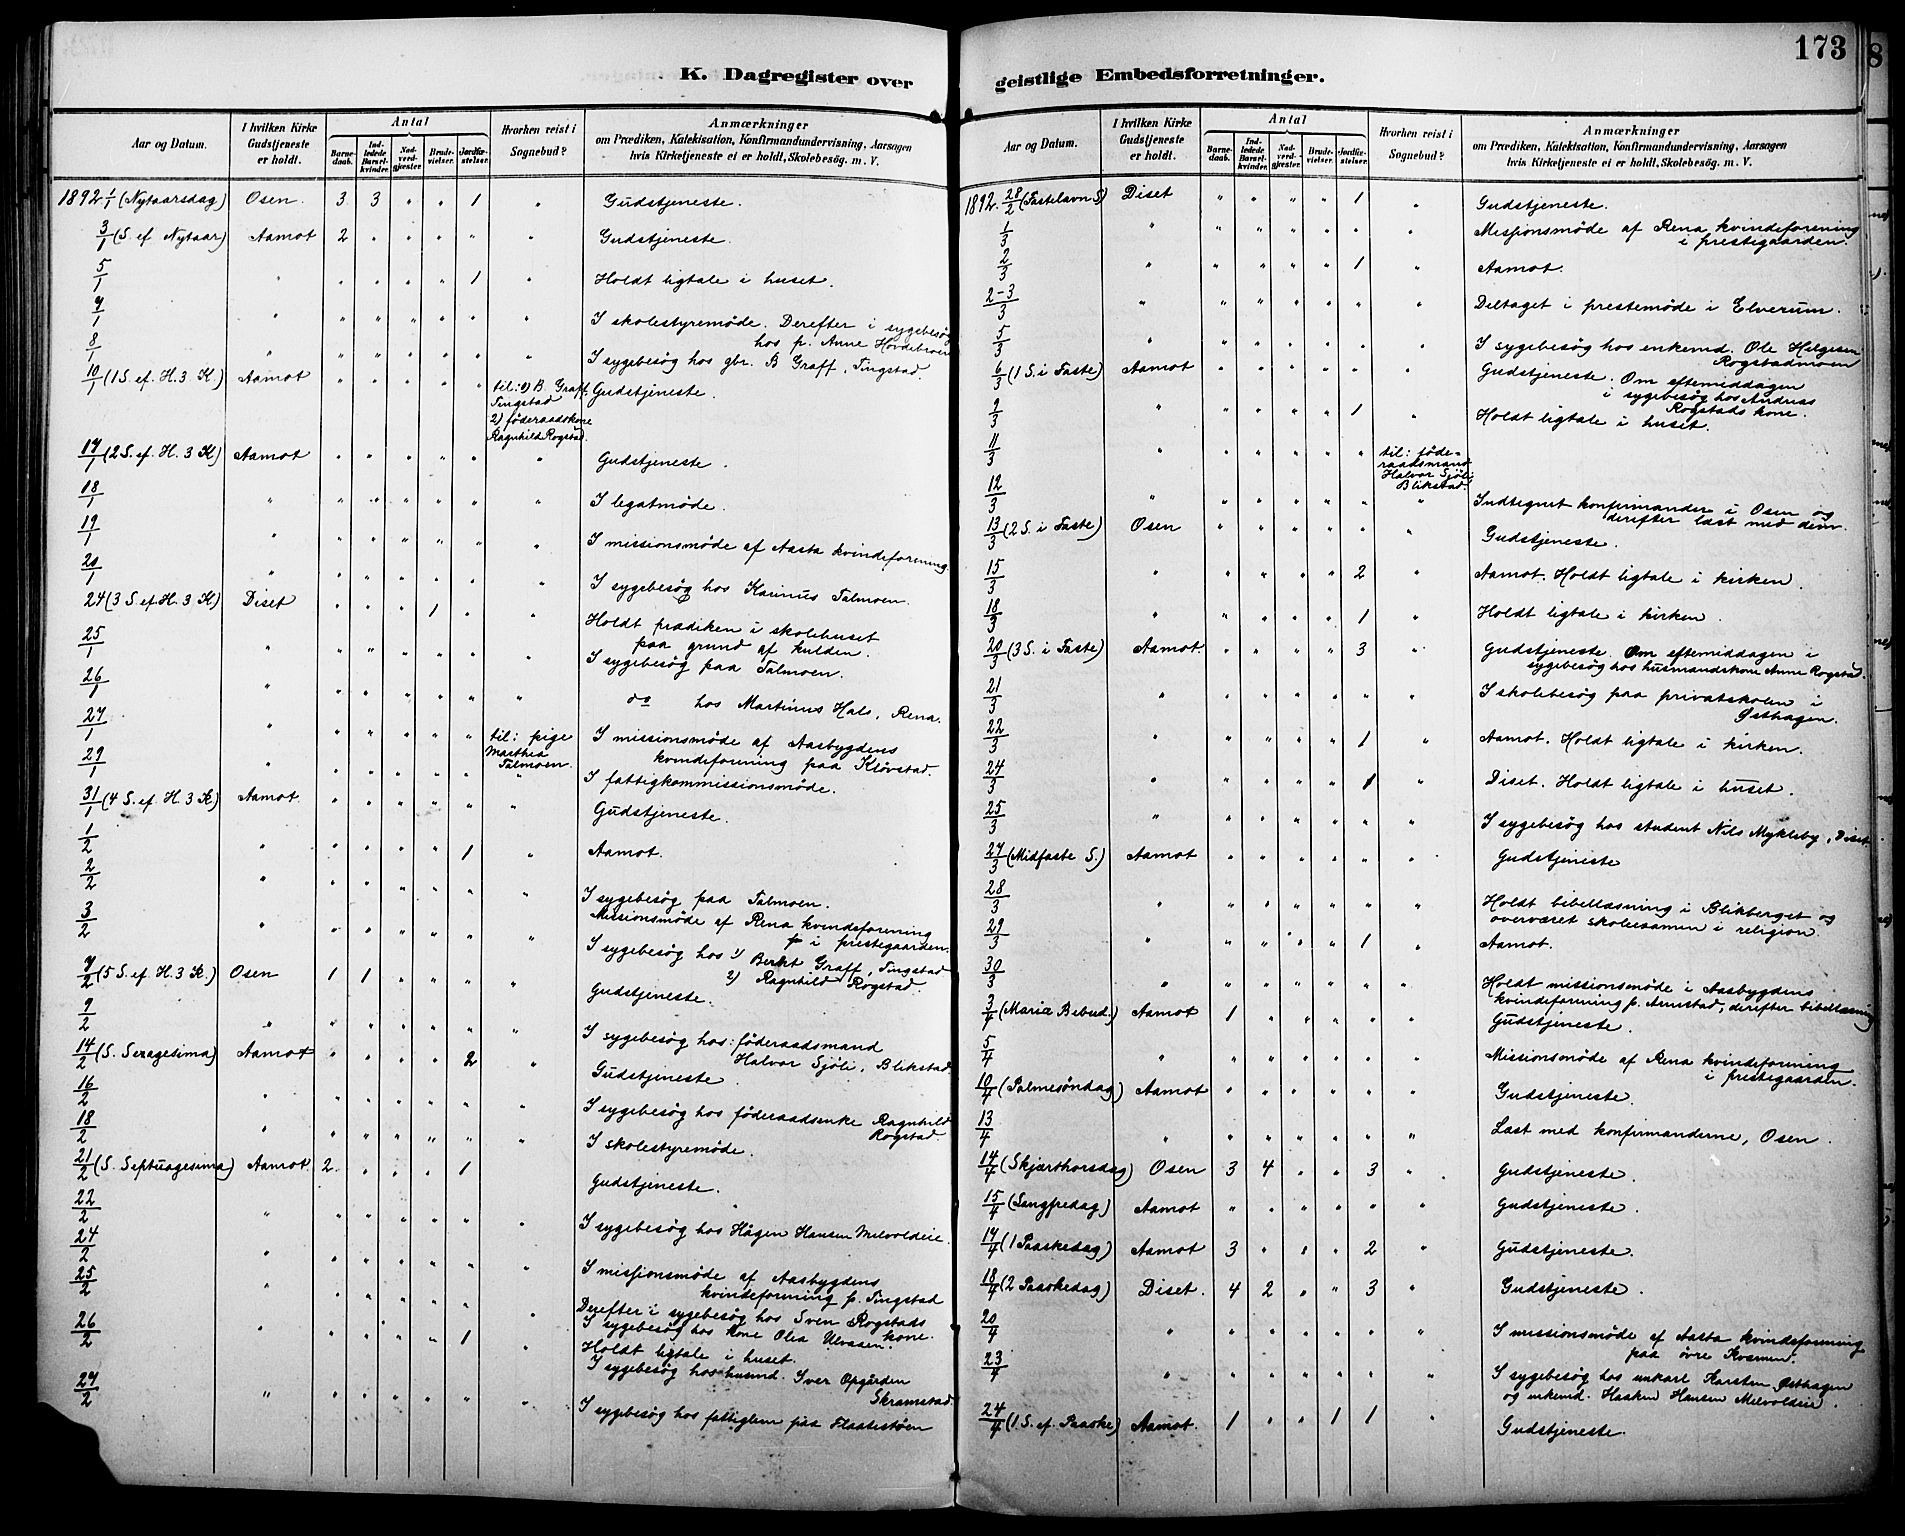 173
K. Dagregister over geistlige Embedsforretninger.
Aar og Datum. | I hvilken Kirke Gudstjeneste er holdt. | Antal | Barnedaab. | Indledede Barselkvinder. | Nadverdgjester. | Brudevielser. | Jordfæstelser. | Hvorhen reist i Sognebud? | Anmærkninger om Prædiken, Katekisation, Konfirmandundervisning, Aarsagen hvis Kirketjeneste ei er holdt, Skolebesøg. m. V.
1892 1/1 (Nytaarsdag) Osen. 3 3 " " 1 " Gudstjeneste.
3/1 (S. ef Nytaar) Aamot 2 " " " " " Gudstjeneste.
5/1 " " " " " 1 " Holdt ligtale i huset.
7/1 " " " " " " " I skolestyremøde. Derefter i sygebesøg
hos p. Anne Hovdebroen
8/1 " " " " " " " I sygebesøg hos gbr. B Graff, Tingstad.
10/1 (1 S. ef. H. 3 K.) Aamot " " " " " til: 1) B. Graff: Gudstjeneste.
Tingstad
2) føderaadskone
Ragnhild Rogstad.
17/1 (2 S. ef. H. 3 K) Aamot " " " " " " Gudstjeneste.
18/1 " " " " " " " I legatmøde.
19/1 " " " " " " " I missionsmøde af Aasta kvindeforening.
20/1 " " " " " " " I sygebesøg hos Talmoen.
24 (3 S. ef. H. 3 K) Diset " " " 1 " " Holdt prædiken i skolehuset
paa grund af kulden.
25/1 " " " " " " " I sygebesøg paa Talmoen.
26/1 " " " " " " " do hos Martinus Hals, Rena.
27/1 " " " " " " til: pige I missionsmøde af Aasbygdens
Marthea kvindeforening paa Kløvstad.
Talmoen.
29/1 " " " " " " " I fattigkommissionsmøde.
31/1 (4 S. ef. H. 3 K.) Aamot. " " " " " " Gudstjeneste.
1/2 " " " " " 1 " Aamot.
2/2 " " " " " " " I sygebesøg paa Talmoen.
Missionsmøde af Rena kvindeforening
i prestegaarden.
3/2 " " " " " " " I sygebesøg hos 1) Berht Graff, Tingstad
2) Ragnhild Rogstad.
7/2 (5 S. ef. H. 3 K.) Osen 1 1 " " " " Gudstjeneste.
9/2 " " " " " " " I sygebesøg hos: føderaadsmand
Halvor Sjøli, Blikstad.
14/2 (S. Seragesima) Aamot " " " " 2 " Gudstjeneste.
16/2 " " " " " " " I sygebesøg hos føderaadsenke Ragnhild
Rogstad
18/2 " " " " " " " I skolestyremøde.
21/2 (S. Septuagesima) Aamot 2 " " " 1 Gudstjeneste.
22/2 " " " " " " " I sygebesøg hos Hågen Hansen Melvoldeie.
24/2 " " " " " " I missionsmøde af Aasbygdens
kvindeforening p. Tingstad
Derefter i sygebesøg hos Sven Rogstads
kone.
25/2 " " " " " " " I sygebesøg hos kone Olea Ulvssen.
26/2 " " " " " 1 " Holdt ligtale i huset.
I sygebesøg hos husmd. Iver Opgården
Skramstad.
27/2 " " " " " " " I sygebesøg hos fattiglem paa Flaatestøen
Aar og Datum. | I hvilken Kirke Gudstjeneste er holdt. | Antal | Barnedaab. | Indledede Barselkvinder. | Nadverdgjester. | Brudevielser. | Jordfæstelser. | Hvorhen reist i Sognebud? | Anmærkninger om Prædiken, Katekisation, Konfirmandundervisning, Aarsagen hvis Kirketjeneste ei er holdt, Skolebesøg. m. V.
1892. 28/2 (Fastelavn S) Diset " " " " 1 " Gudstjeneste.
1/3 " " " " " " " Missionsmøde af Rena kvindeforening
i prestigaarden.
2/3 " " " " " 1 " Aamot.
2-3/3 " " " " " " " Deltaget i prestemøde i Elverum.
5/3 " " " " " " " I sygebesøg hos enkemd. Ole Helgesen
Rogstadmoen
6/3 (1 S. i Faste) Aamot " " " " " " Gudstjeneste. Om eftemiddagen
i sygebesøg hos Andreas
Rogstads kone.
9/3 " " " " " 1 " Holdt ligtale i huset.
11/3 " " " " " " til: føde-
raadsmand
Halvor Sjøli
Blikstad.
12/3 " " " " " " " Indtegnet konfirmander i Osen og
derefter læst med dem.
13/3 (2 S. i Faste) Osen " " " " " " Gudstjeneste.
15/3 " " " " " 2 " Aamot. Holdt ligtale i kirken.
18/3 " " " " " 1 " Holdt ligtale i kirken.
20/3 (3 S. i Faste) Aamot " " " " 3 " Gudstjeneste. Om eftemiddagen i
sygebesøg hos husmandskone Anne Rogstad.
21/3 " " " " " " " I skolebesøg paa privatskolen i
Østhagen.
22/3 " " " " " 1 " Aamot. Holdt ligtale i kirken.
24/3 " " " " " 1 " Diset. Holdt ligtale i huset.
25/3 " " " " " " " I sygebesøg hos student Nils Mykleby, Diset
27/3 (Midfaste S.) Aamot " " " " " " Gudstjeneste
28/3 " " " " " " " Holdt bibellæsning i Blikberget og
overværet skoleexamen i religion.
29/3 " " " " " 1 " Aamot.
30/3 " " " " " " " Holdt missionsmøde i Aasbygdens
kvindeforening p. Arnestad, derefter bibellæsning
3/4 (Mariæ Bebud.) Aamot 1 " " " " " Gudstjeneste.
5/4 " " " " " " " Missionsmøde af Rena kvindeforening
i prestegaarden.
10/4 (Palmesøndag) Aamot " " " " " " Gudstjeneste.
13/4 " " " " " " " Læst med konfirmanderne, Osen.
14/4 (Skjærthorsdag) Osen 3 4 " " 3 " Gudstjeneste.
15/4 (Langfredag) Aamot " " " " " " Gudstjeneste.
17/4 (1 Paaskedag) Aamot 3 " " " 2 " Gudstjeneste.
18/4 (2 Paaskedag) Diset. 4 2 " " 3 " Gudstjeneste.
20/4 " " " " " " " I missionsmøde af Aasta kvindeforening
paa øvre Kvernen.
23/4 " " " " " " " I sygebesøg hos unkarl Karsten Østhagen
og enkemd. Haaken Hansen Melvoldeie.
24/4 (1 S. ef. Paaske) Aamot. 1 " " 1 1 " Gudstjeneste.